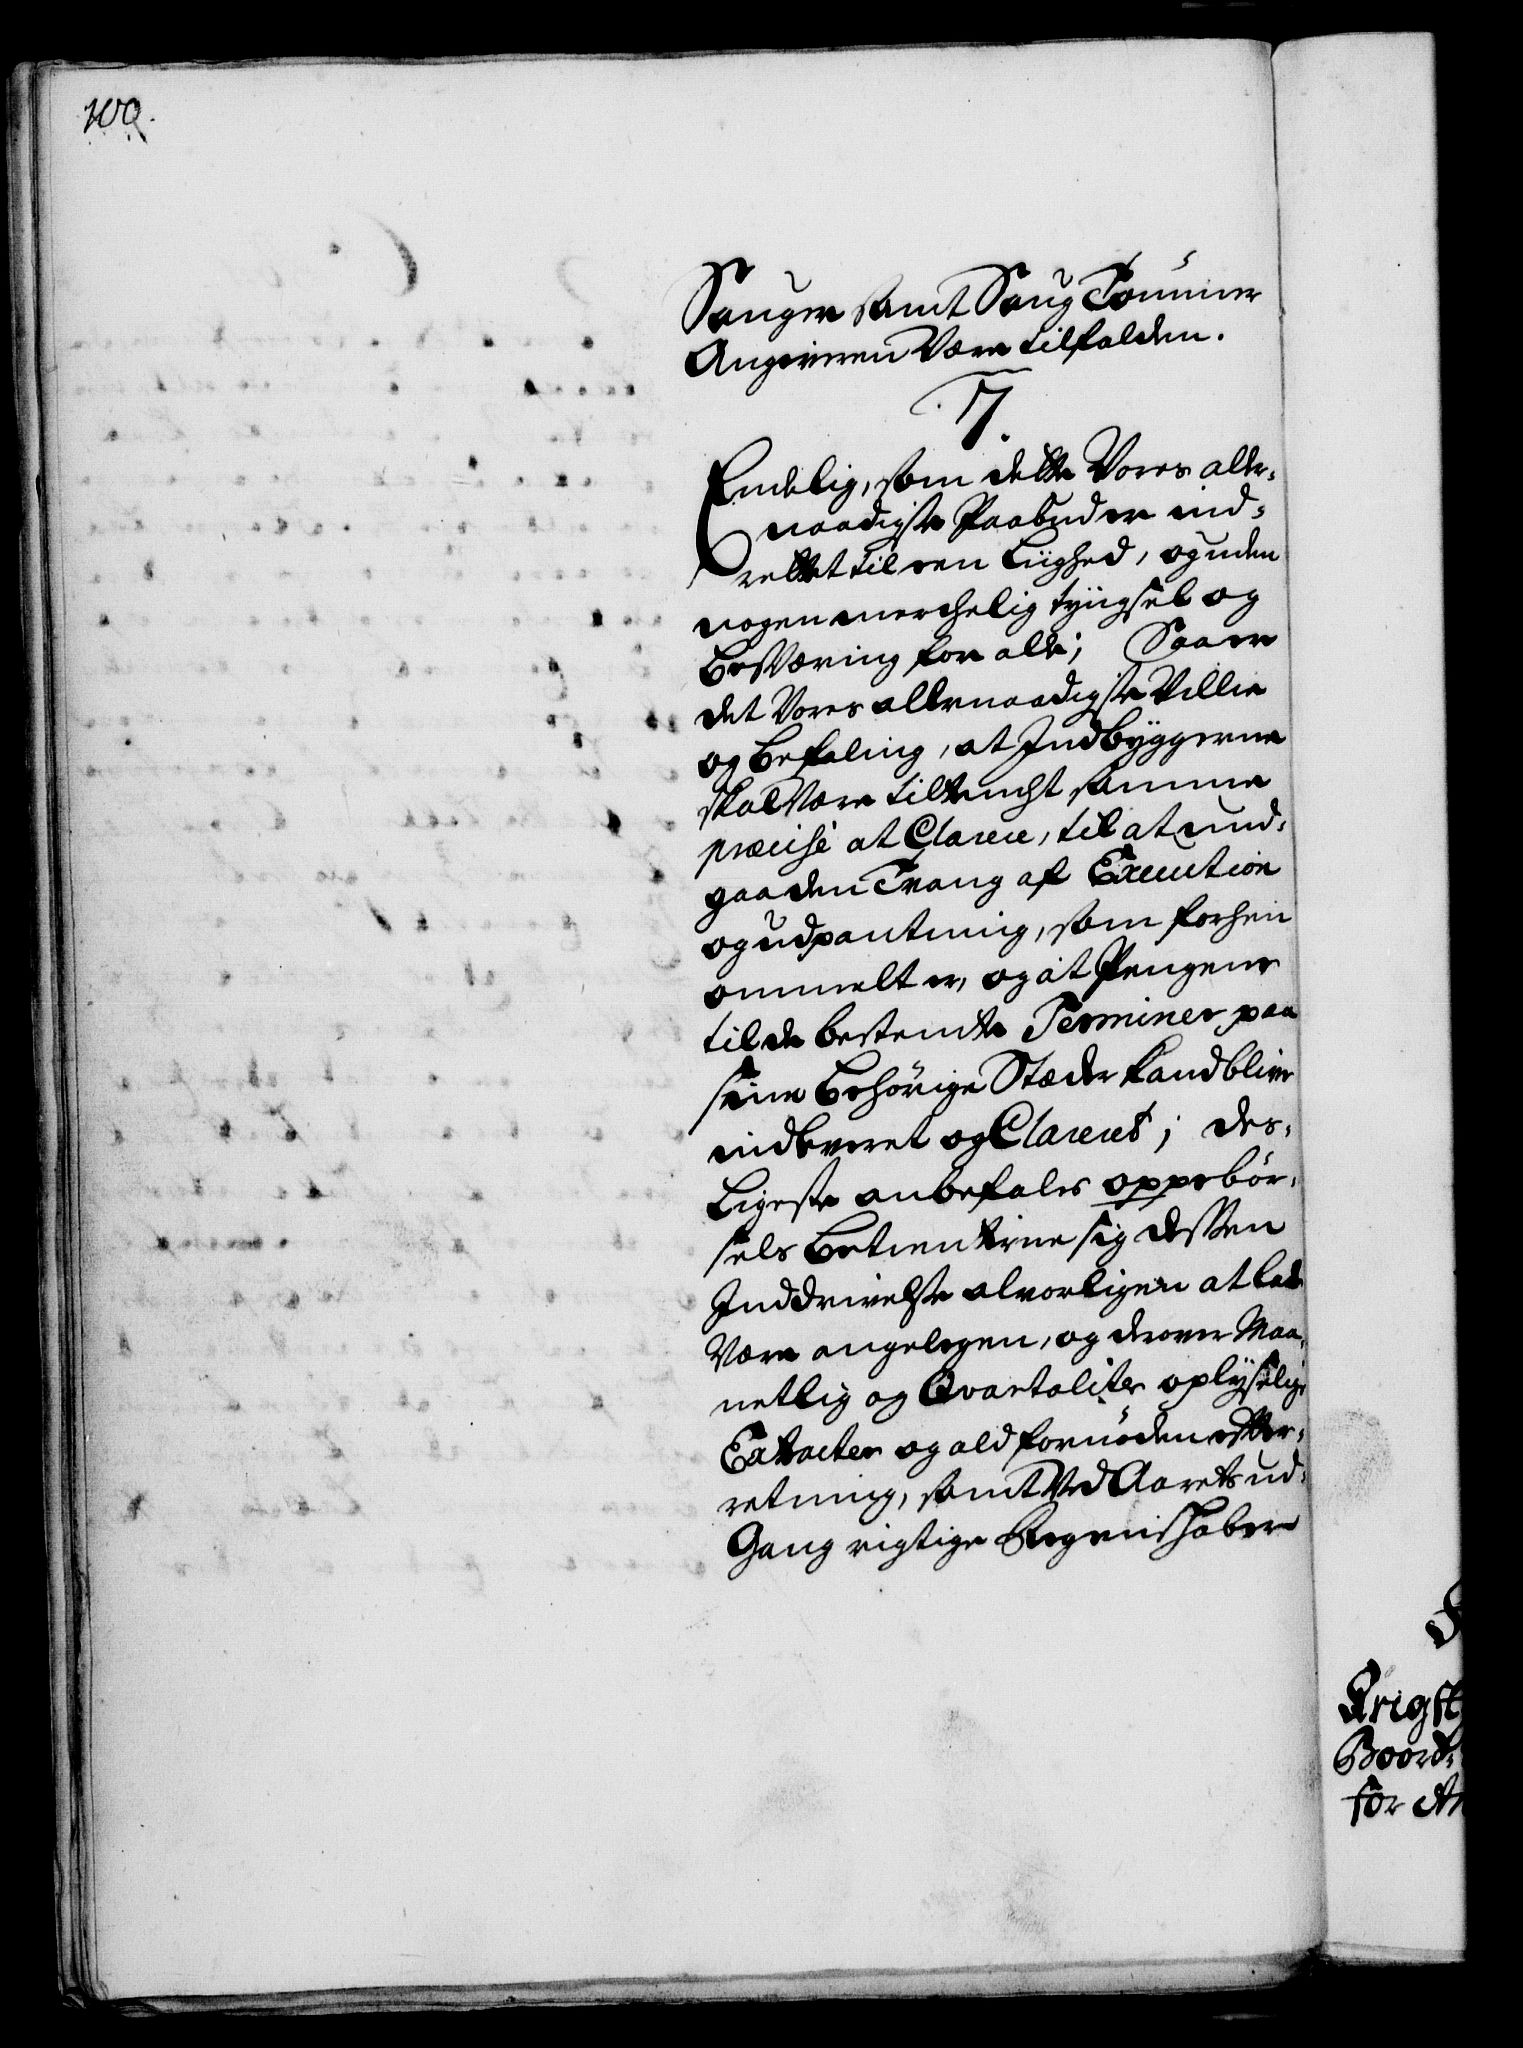 100.
Senger samt Seng Tømmer
Angiveren Være tilfalden.
7.
Endelig, som dette Vores aller-
naadigste Paabud er ind-
rettet til een Liighed, og uden
nogen merchelig tyngsel og
besværing for alle; Saa er
det Vores allernaadigste Villie
og befaling, at Indbyggerne
skal Være tiltencht samme
præcisè at Clarere, til at und-
gaa den Tvang af Execution
og udpantning, som forhen
ommelt er, og at Pengene
til de bestemte Terminer paa
sine behörige Stæder kand blive
indleveret og Clareret; des-
ligeste anbefales oppebör-
sels betienterne sig dessen
Inddrivelse alvorligen at lade
Være angelegen, og derover Maa-
netlig og Qvartaliter oplyselige
Extracter og ald fornöden efter-
retning, samt Ved Aarets ud-
Gang rigtige Regenskaber
Krigst
Boord-
for An